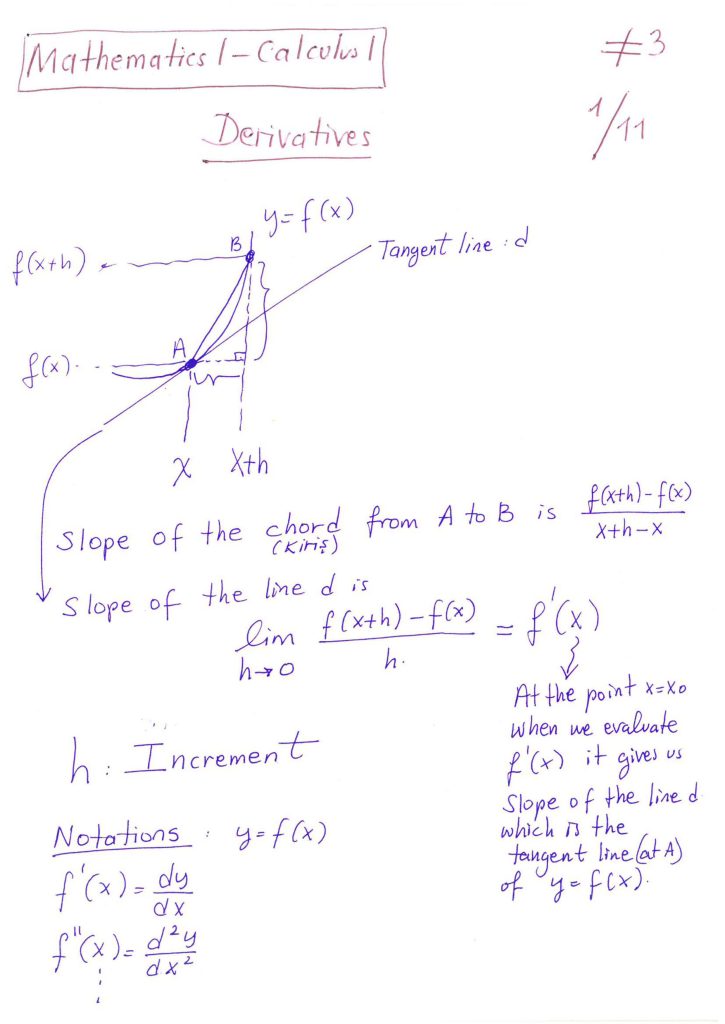 Mathematics 1 – Calculus 1
≠3
Derivatives
1/11
y=f(x)
B
f(x+h)
Tangent line : d
A
f(x)
x
x+h
Slope of the chord from A to B is f(x+h)-f(x) / x+h-x
(kiriş)
Slope of the line d is
lim h→0 f(x+h)-f(x) / h. = f'(x)
At the point x=x0
when we evaluate
f'(x) it gives us
Slope of the line d
which is the
tangent line (at A)
of y=f(x).
h : Increment
Notations : y=f(x)
f'(x)= dy/dx
f''(x)= d²y/dx²
⋮